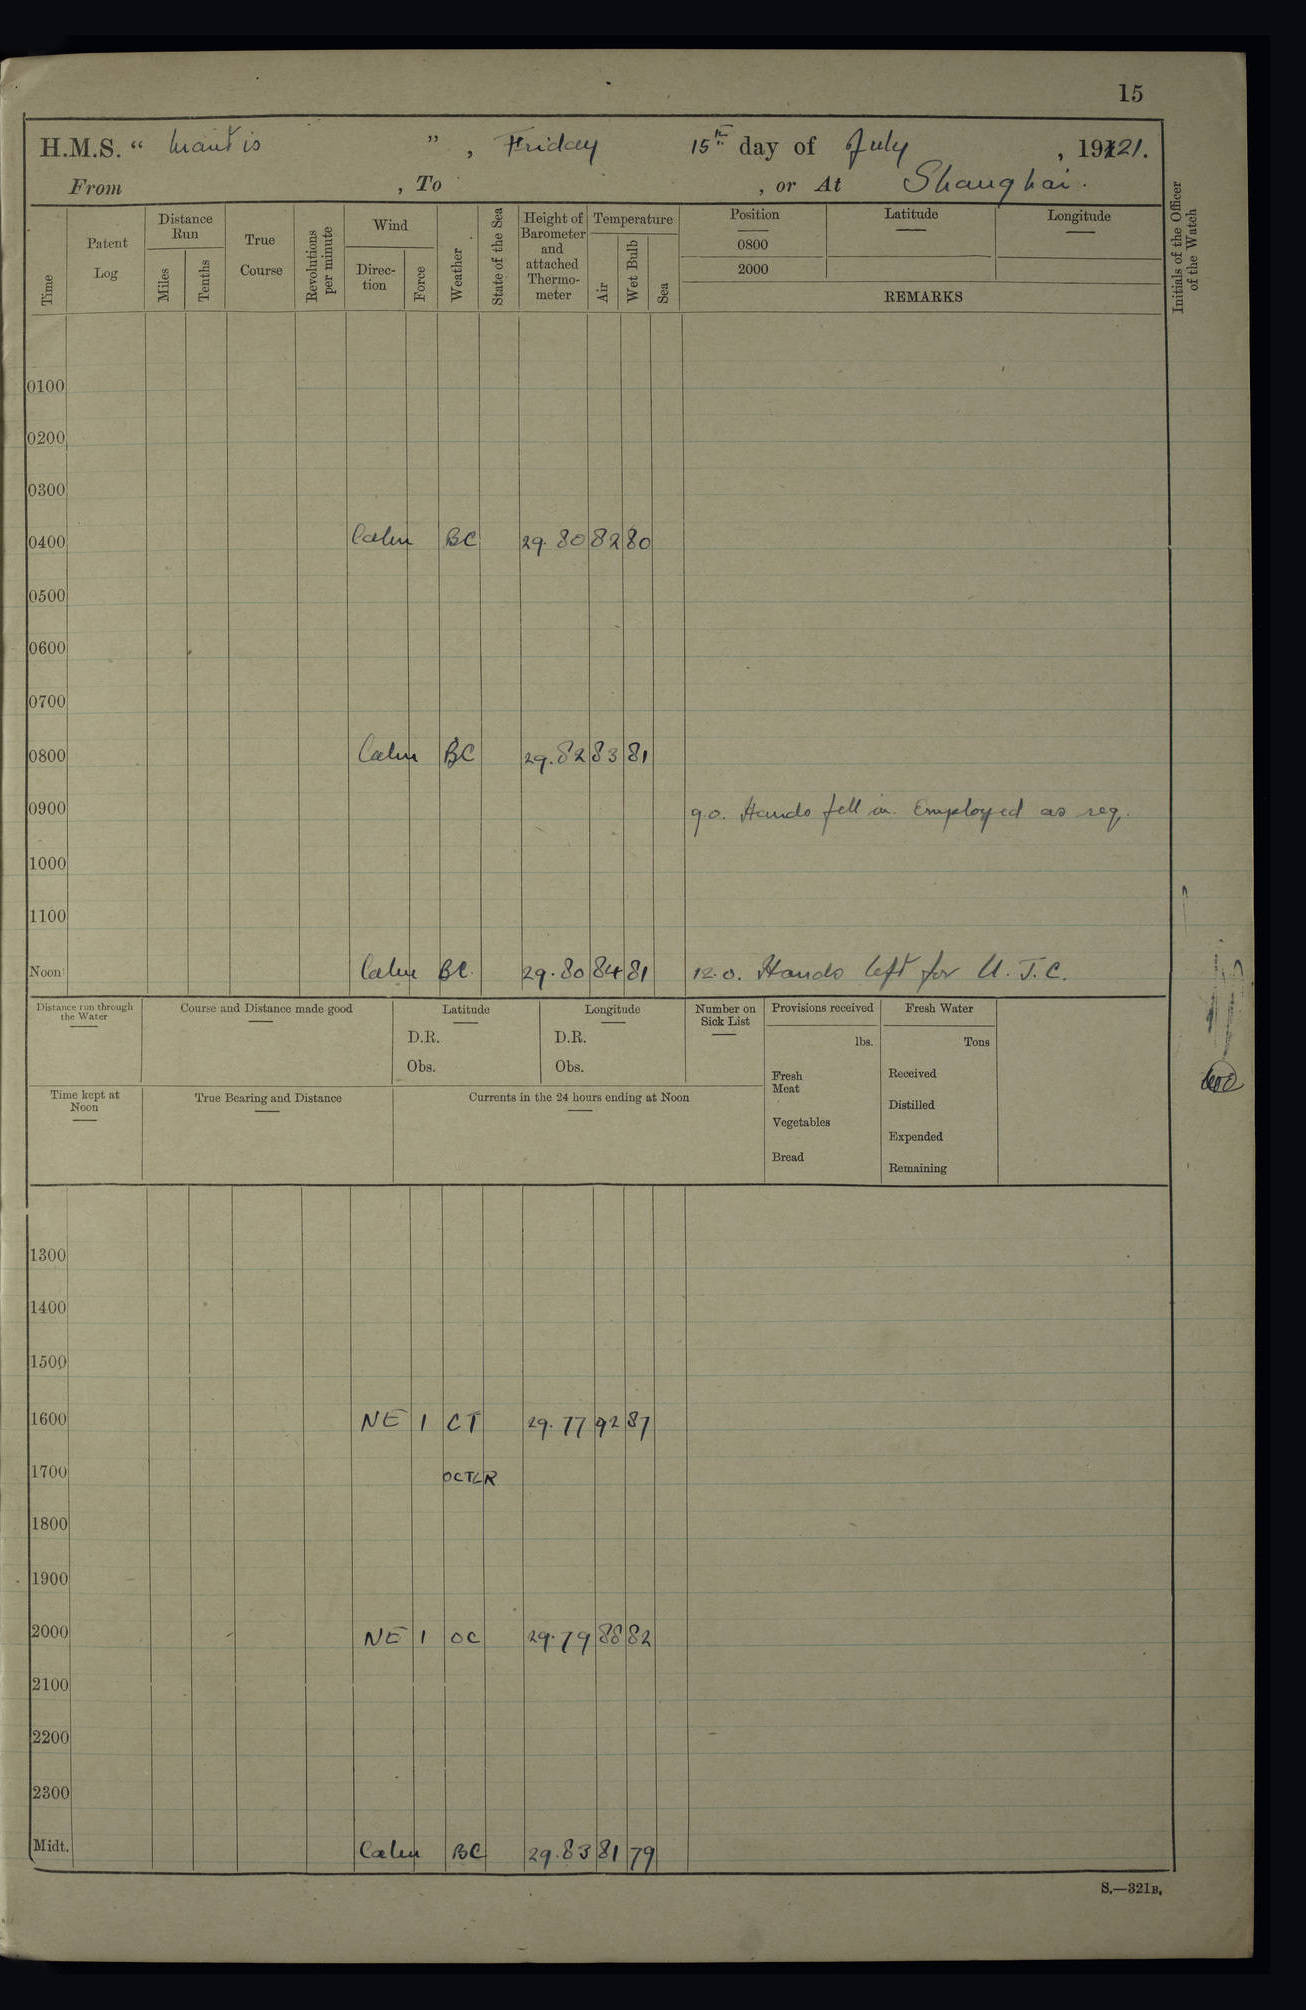 15
H.M.S. “ Mantis ” , Friday 15th day of July , 1921.
From , To , or At Shanghai.
Time
Patent Log
Distance Run
Miles
Tenths
True Course
Revolutions per minute
Wind
Direc-tion
Force
Weather
State of the Sea
Height of Barometer and attached Thermo-meter
Temperature
Air
Wet Bulb
Sea
Position
0800
2000
Latitude
Longitude
REMARKS
Initials of the Officer of the Watch
0100
0200
0300
0400 Calm BC 29.80 82 80
0500
0600
0700
0800 Calm BC 29.82 83 81
0900 9.0. Hands fell in. Employed as req.
1000
1100
Noon Calm BC 29.80 84 81 12.0. Hands left for U.J.C.
Distance run through the Water
Course and Distance made good
Latitude
D.R.
Obs.
Longitude
D.R.
Obs.
Number on Sick List
Provisions received
lbs.
Fresh Meat
Vegetables
Bread
Fresh Water
Tons
Received
Distilled
Expended
Remaining
Time kept at Noon
True Bearing and Distance
Currents in the 24 hours ending at Noon
1300
1400
1500
1600 NE 1 CT 29.77 92 87
1700 OCTLR
1800
1900
2000 NE 1 OC 29.79 88 82
2100
2200
2300
Midt. Calm BC 29.83 81 79
S.—321B.